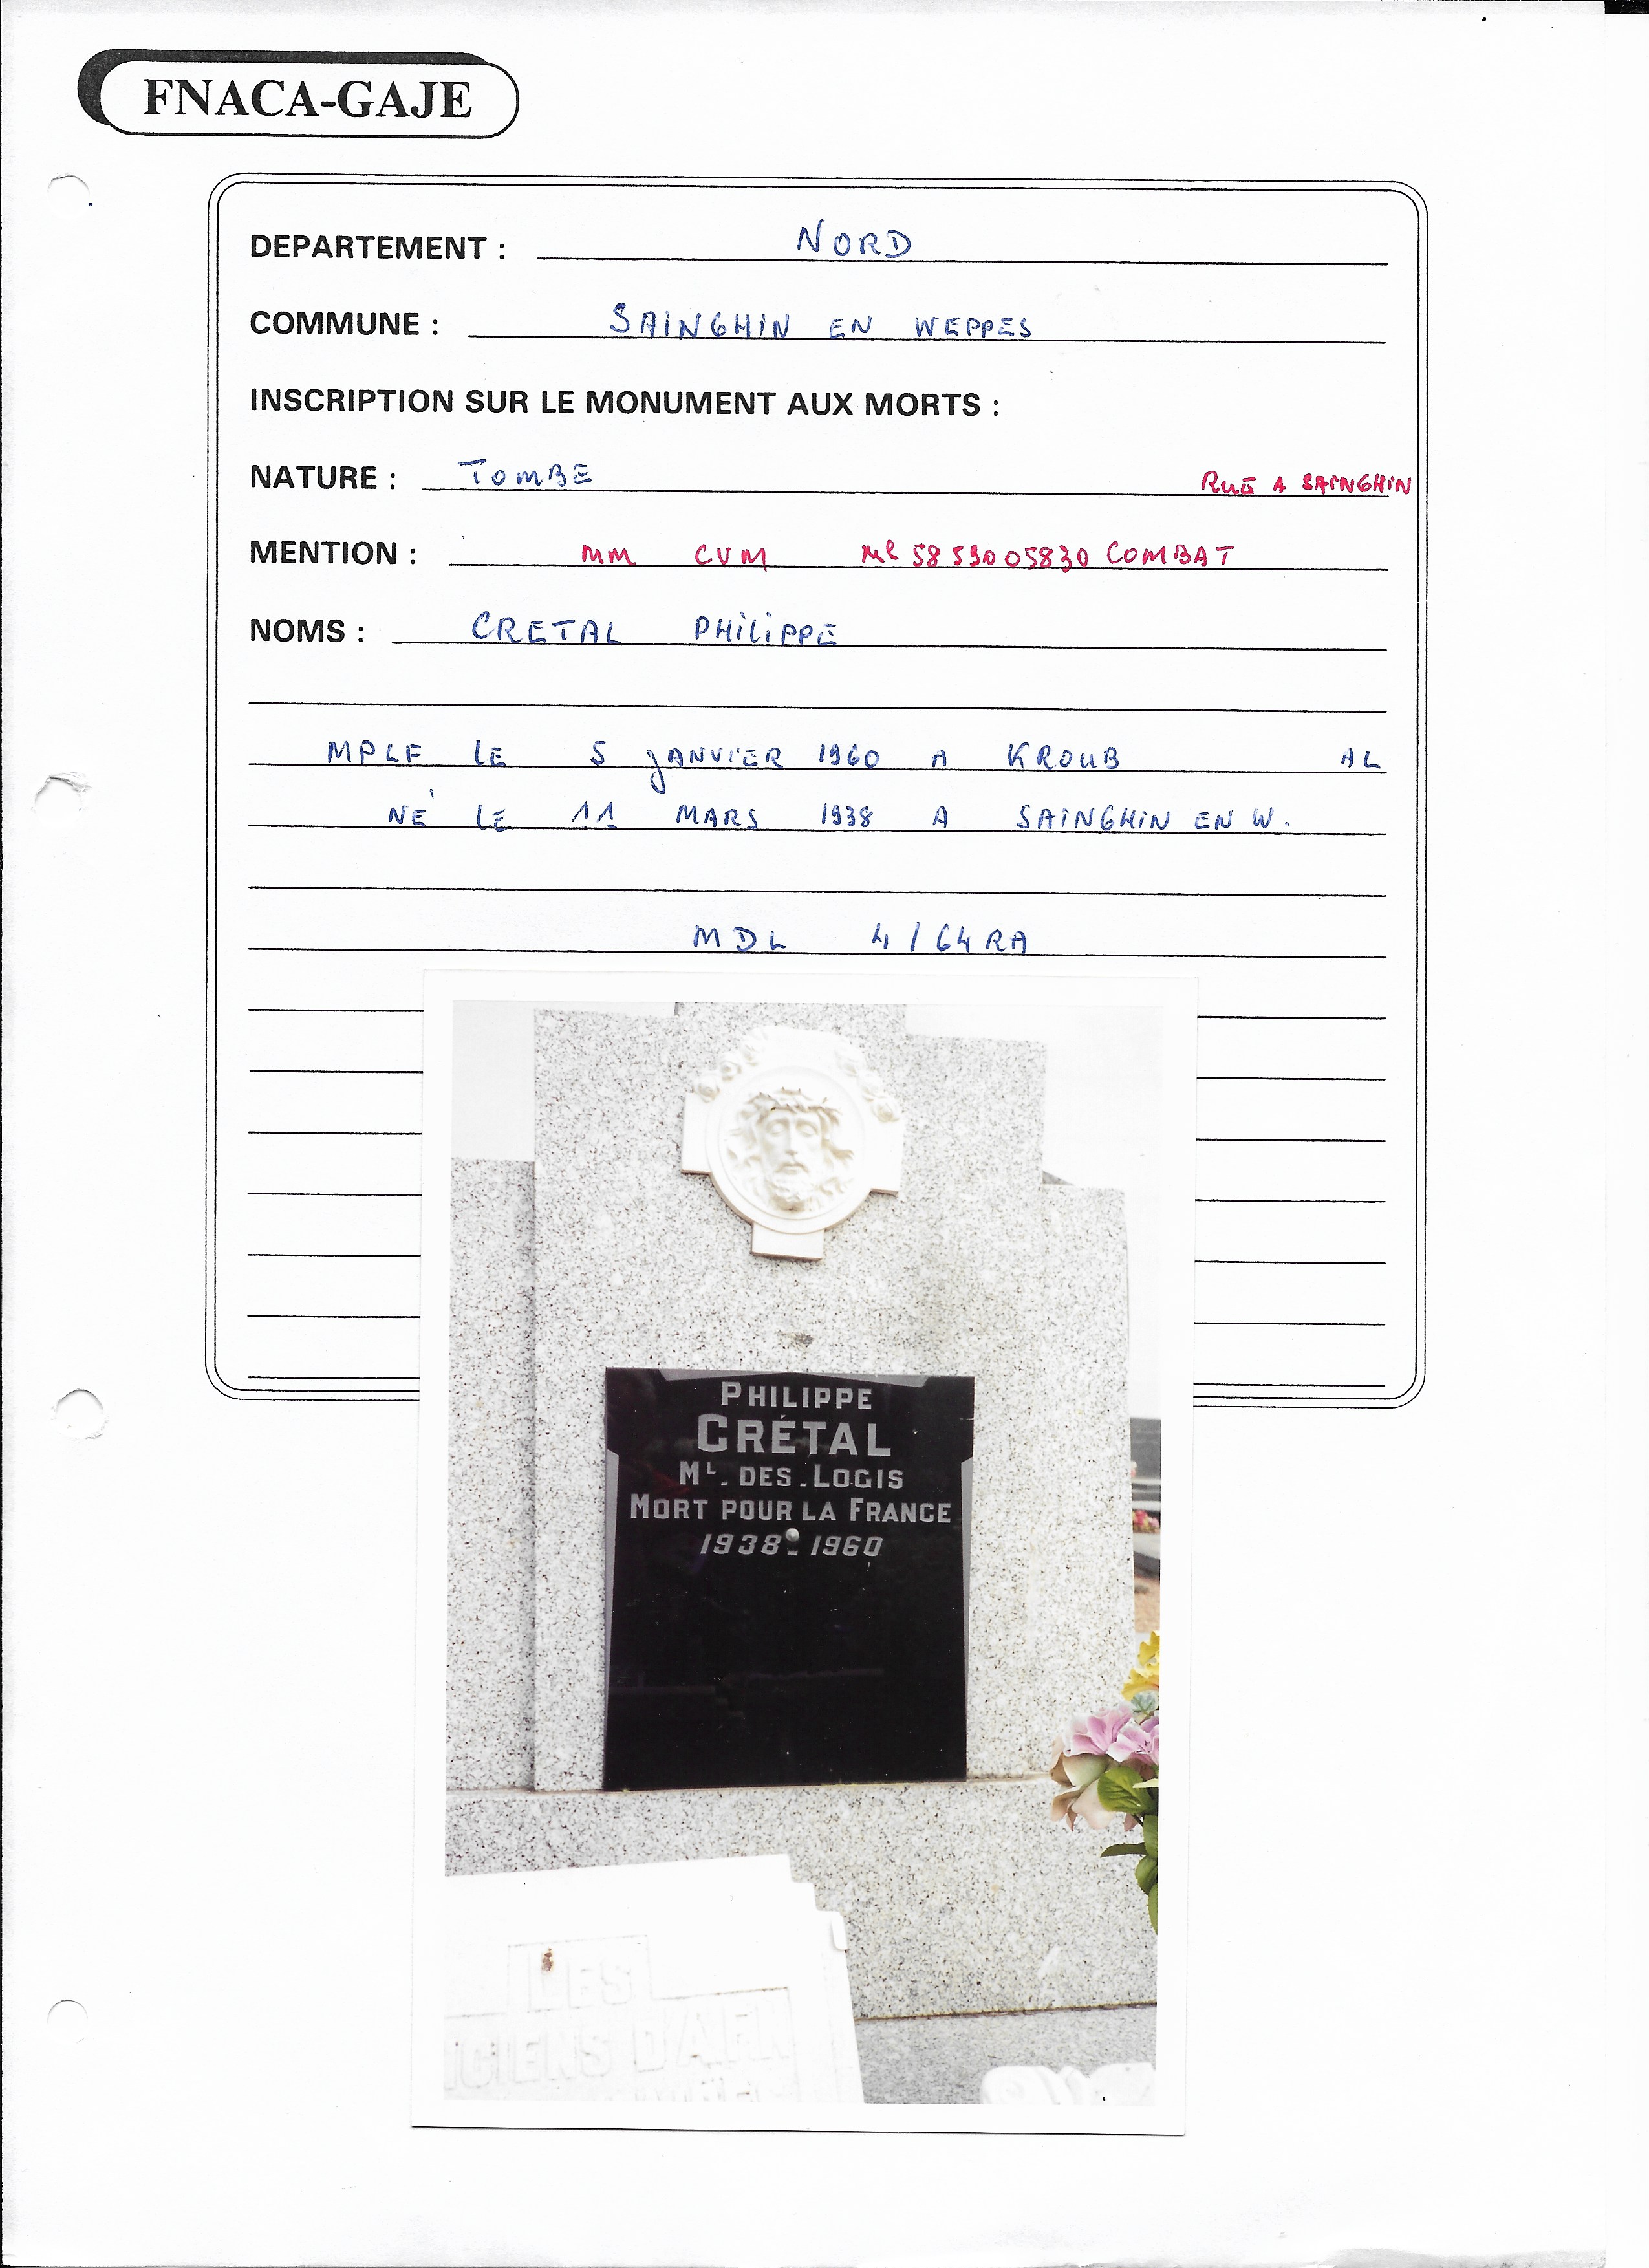 FNACA-GAJE
DEPARTEMENT : NORD
COMMUNE : SAINGHIN EN WEPPES
INSCRIPTION SUR LE MONUMENT AUX MORTS :
NATURE : TOMBE RUE A SAINGHIN
MENTION : MM CVM Ml 5859005830 COMBAT
NOMS : CRETAL PHILIPPE
MPLF LE 5 JANVIER 1960 A KROUB AL
NÉ LE 11 MARS 1938 A SAINGHIN EN W.
MDL 4/64RA
PHILIPPE
CRÉTAL
ML. DES.LOGIS
MORT POUR LA FRANCE
1938-1960
LES
CIENS D'AFN